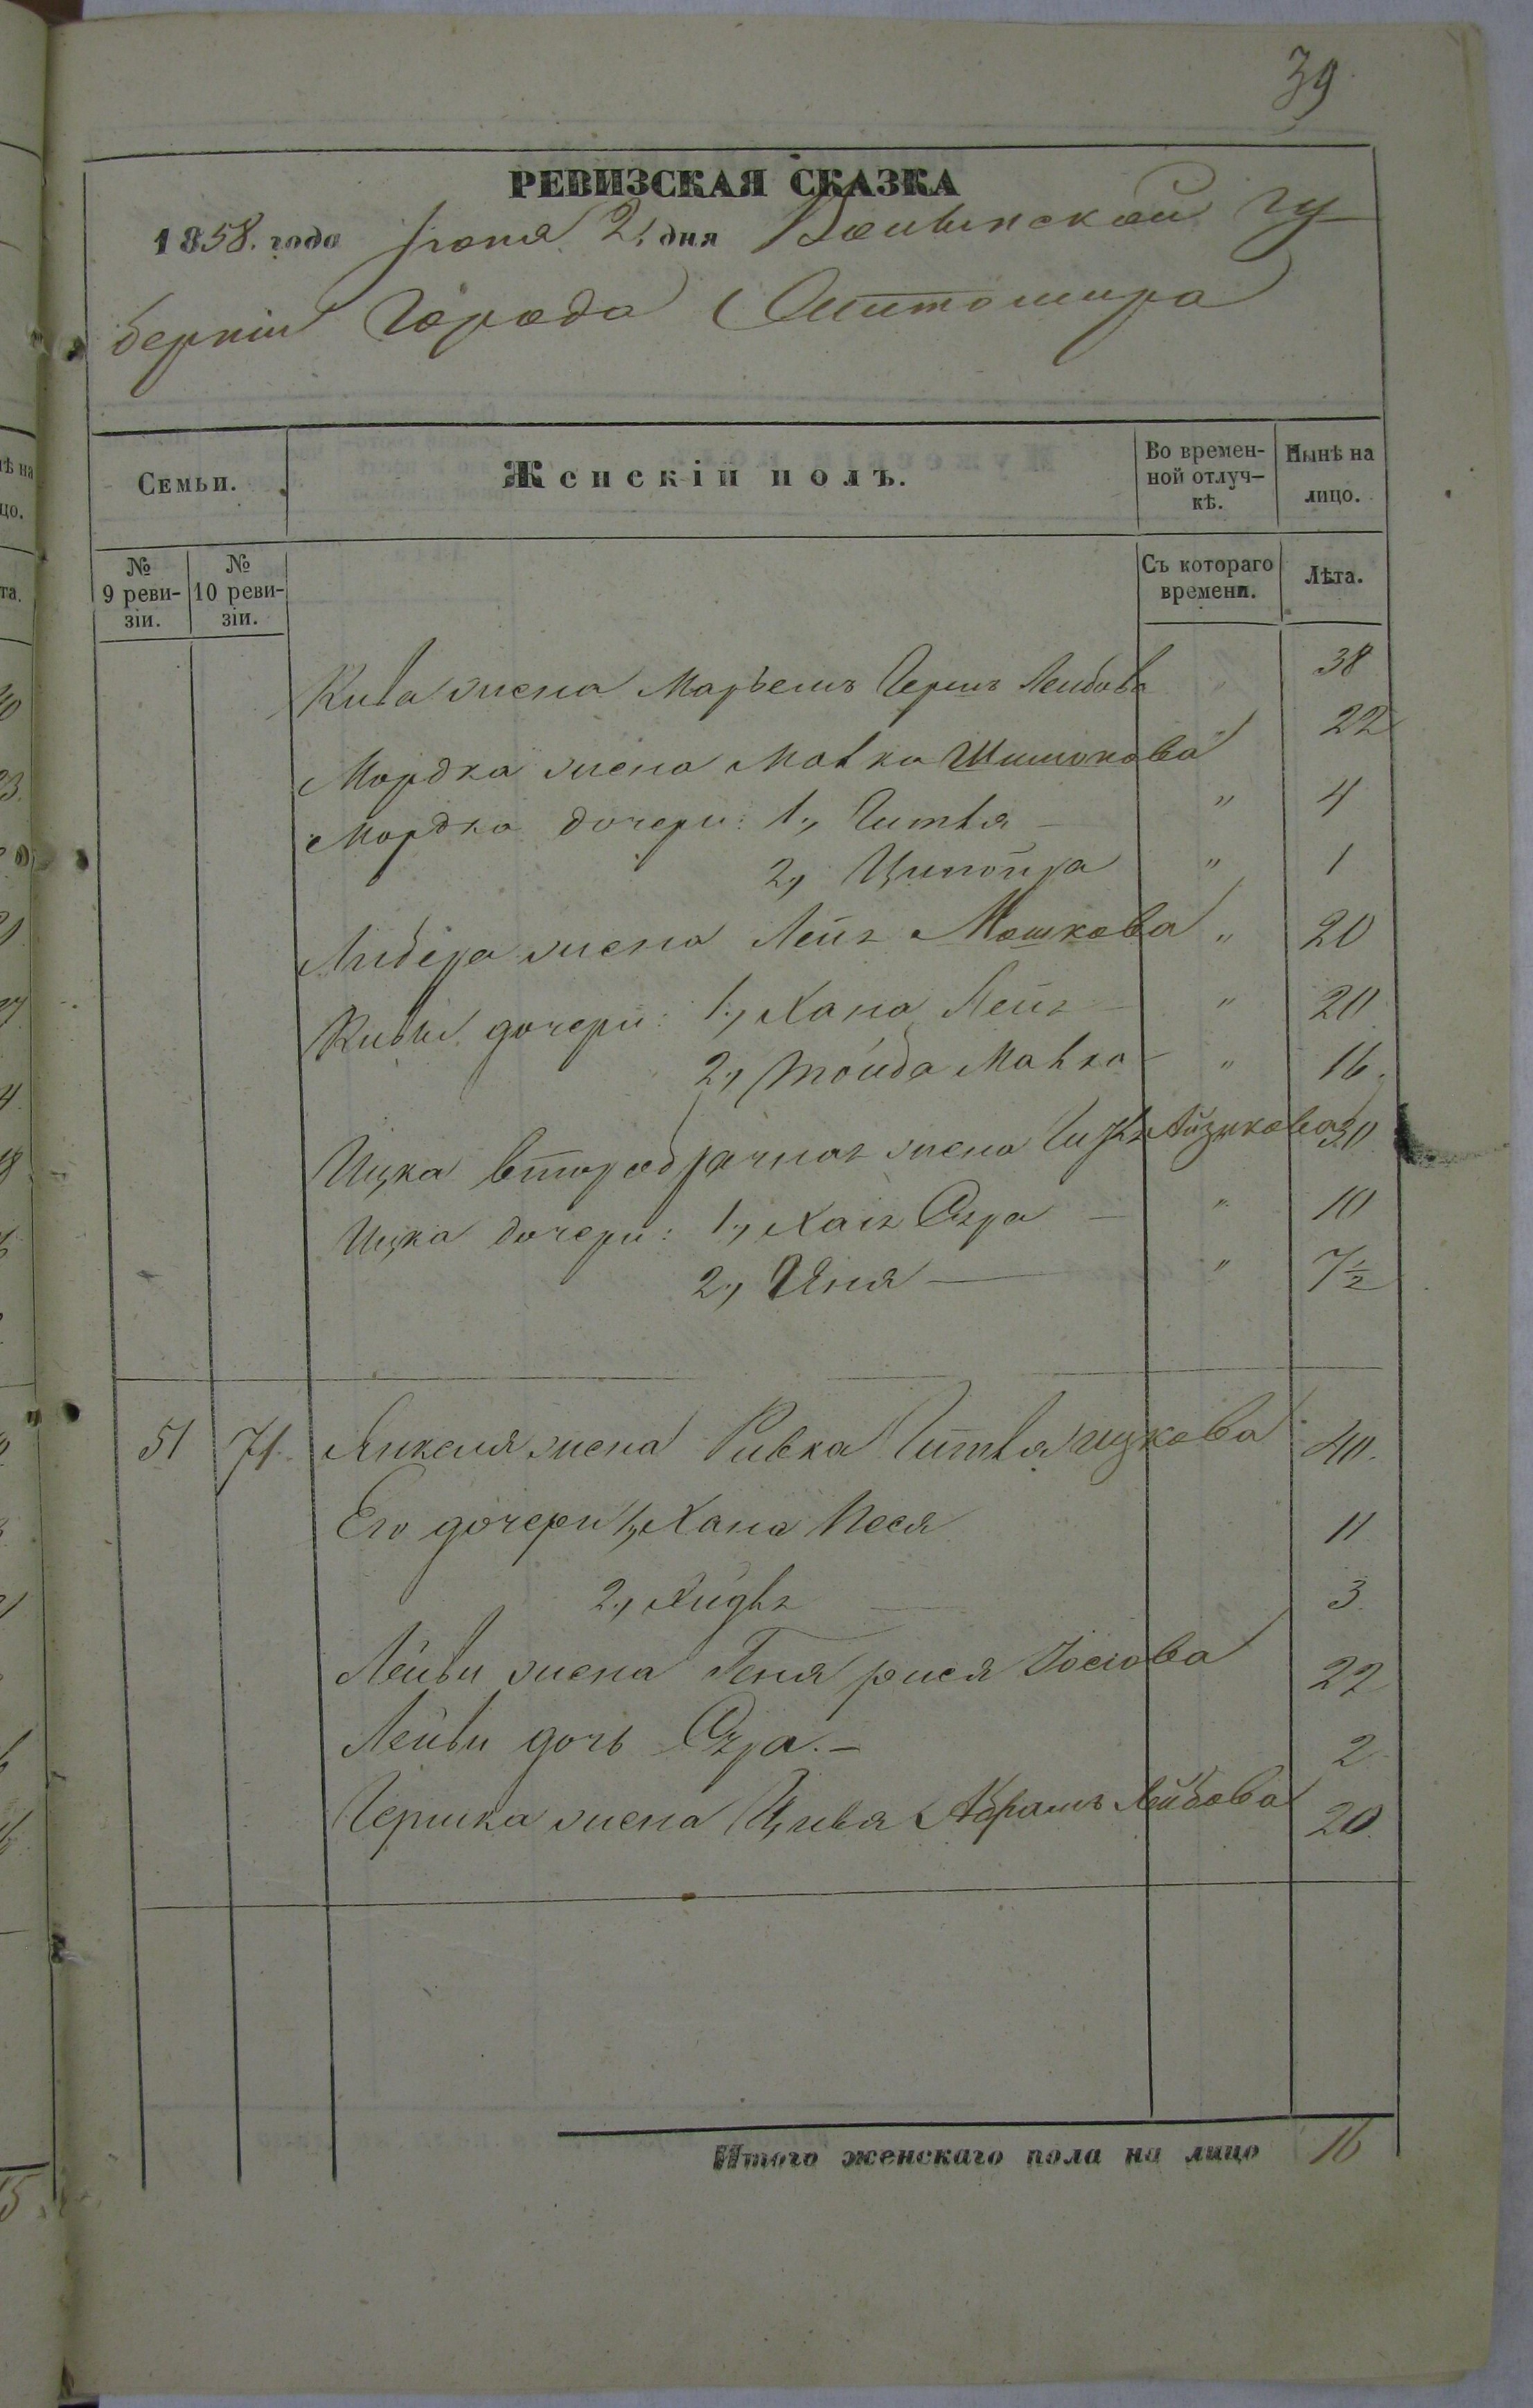 39
РЕВИЗСКАЯ СКАЗКА
1858. года Іюня 2, дня Волынской гу
берніи Города Житомира
Семьи.
Женскій полъ.
Во времен-
ной отлуч-
кѣ.
Нынѣ на
лицо.
№
9 реви-
зіи.
№
10 реви-
зіи.
Съ котораго
времени.
Лѣта.
Кива жена Марьемъ Гершъ Лейбова 38
Мордка жена Малка Шимонова " 22
Мордка дочери: 1, Гитля " 4
2, Ципойра " 1
Либера жена Лея Мошкова " 20
Кивы дочери: 1, Хана Лея " 20
2, Тойба Малка " 16
Ицка второбрачная жена Айзикова 30
Ицка дочери: 1, Хая Сура " 10
2, Яня " 7 1/2
51 71. Янкеля жена Ривка Гитля ицкова 40.
Его дочери 1, Хана Песя 11
2, 3
Лейви жена Геня рися Іосіова 22
Лейви дочь Сура. 2
Гершка жена Цивя Абрамъ Лейбова 20.
Итого женскаго пола на лицо 16